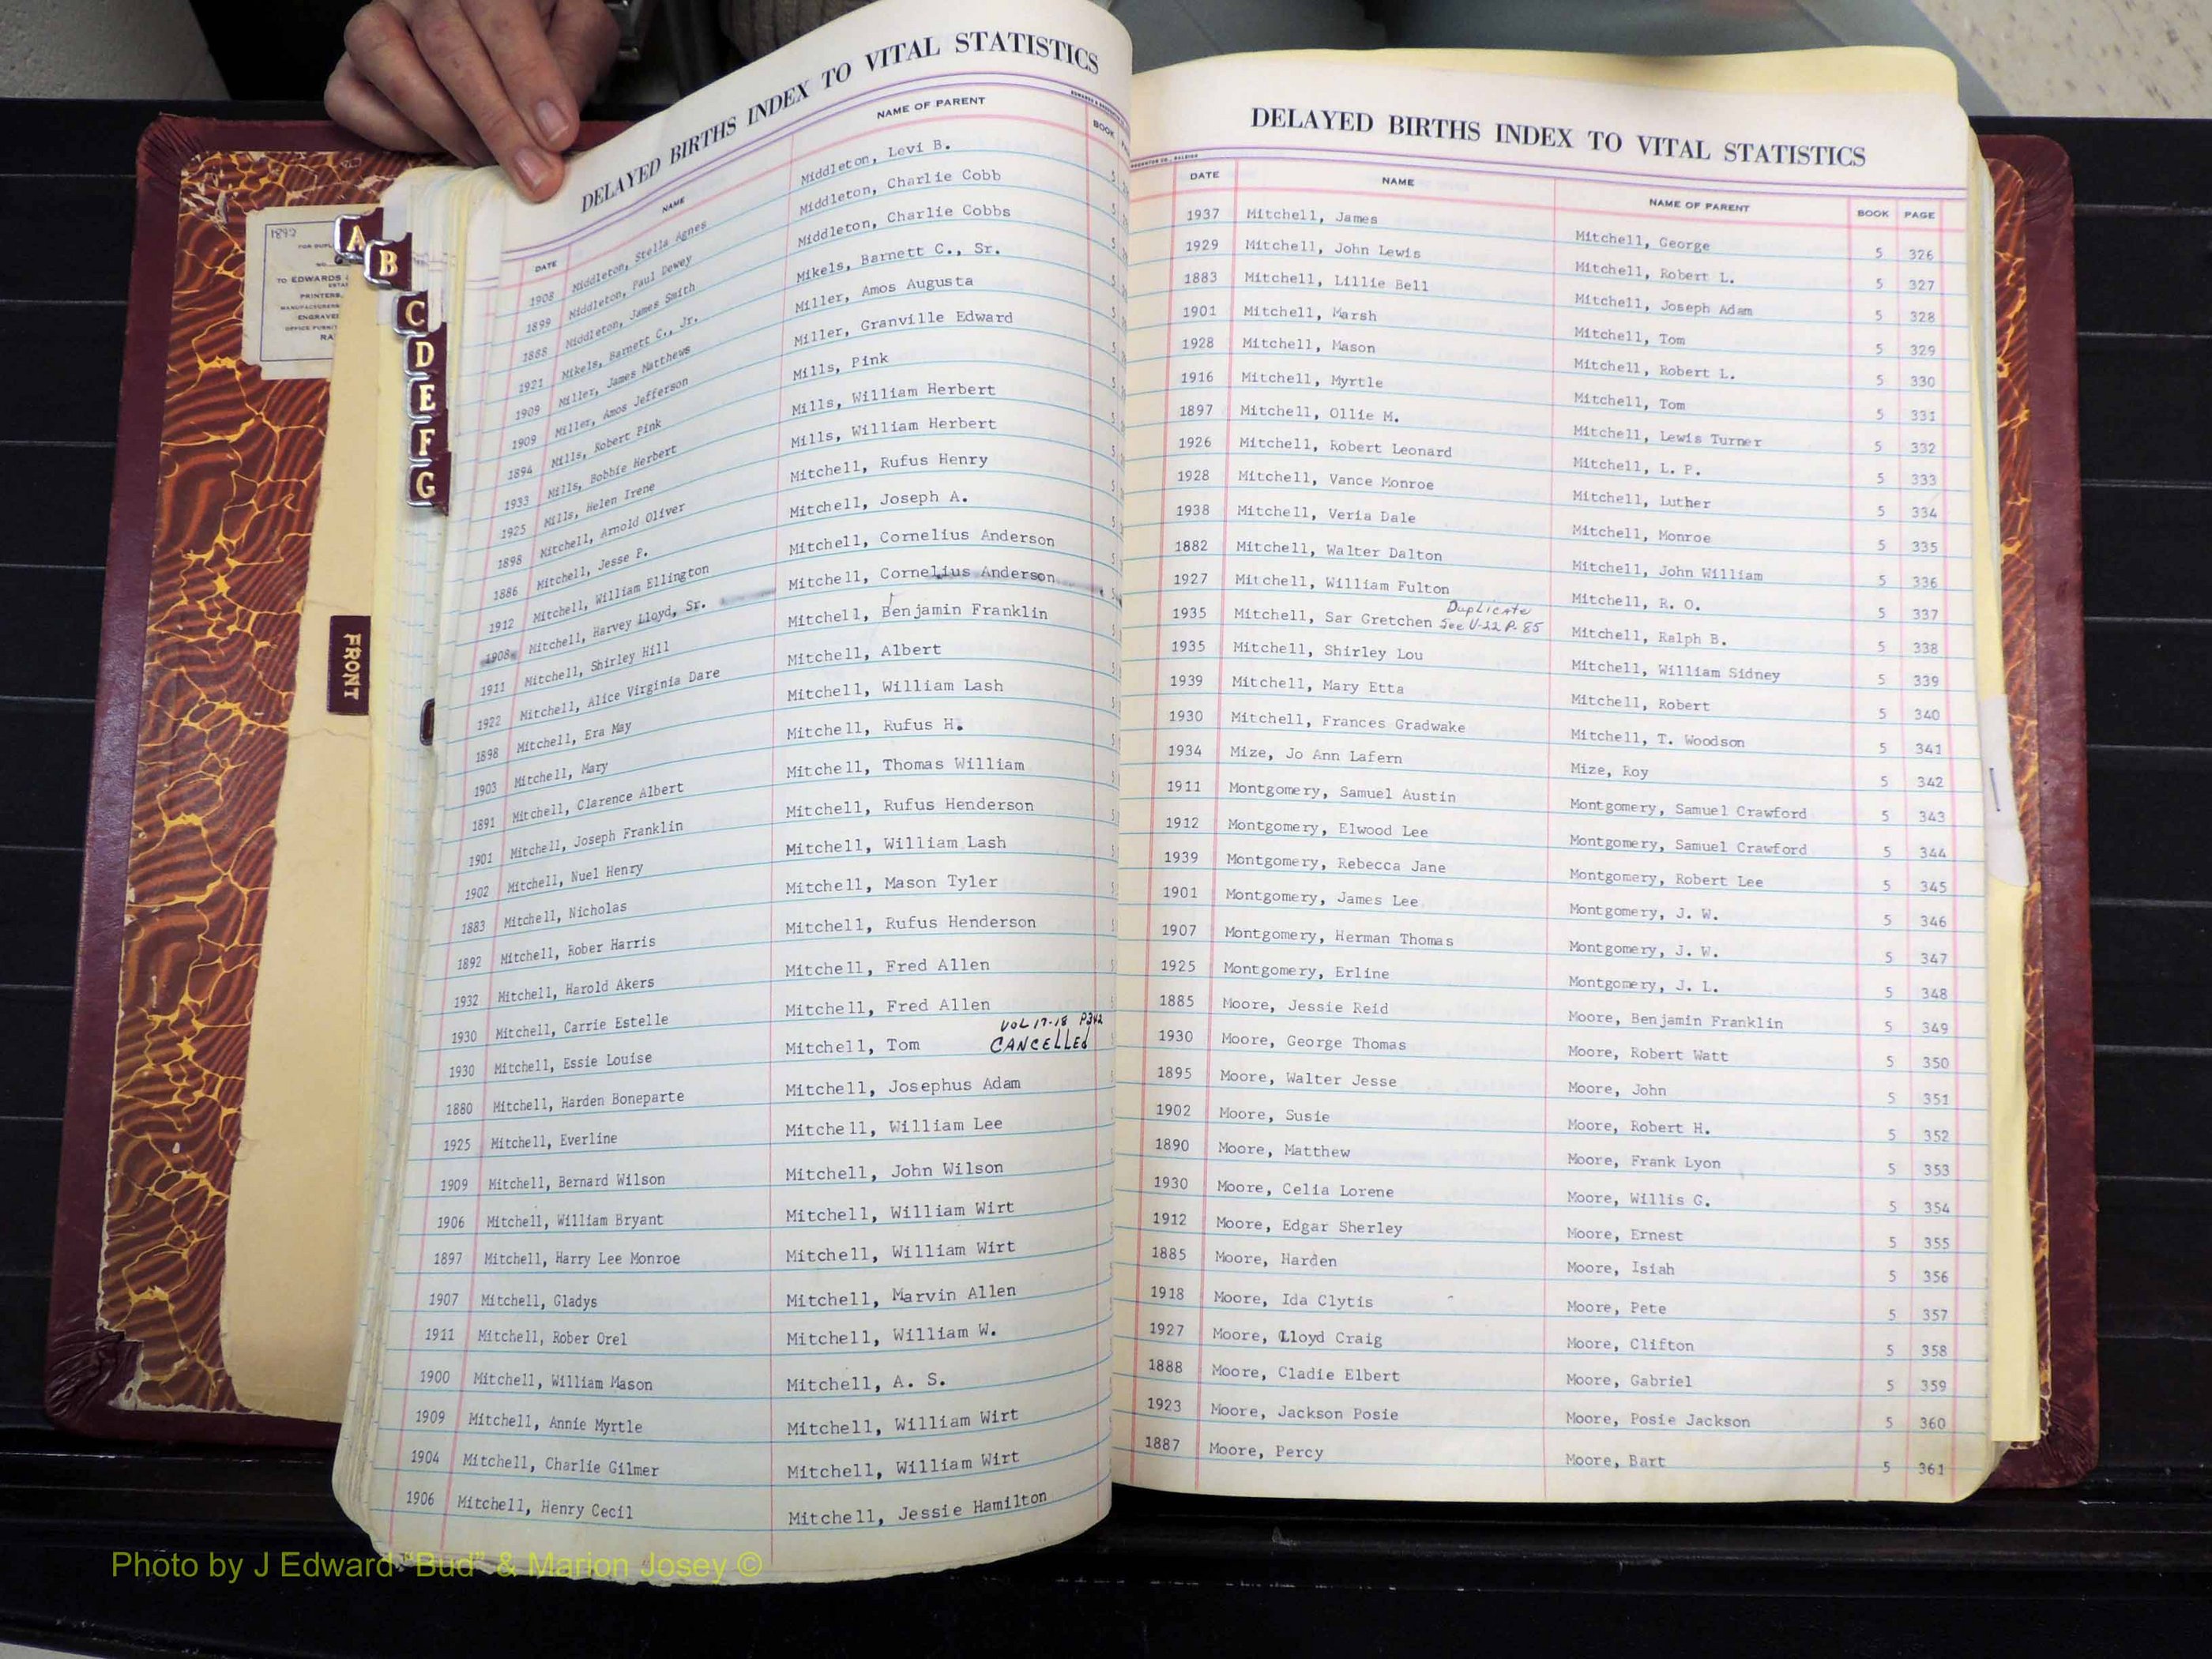 1892
TO EDWARDS &
PRINTERS,
ENGRAVE
RA
A
B
C
D
E
F
G
FRONT
DELAYED BIRTHS INDEX TO VITAL STATISTICS
DATE NAME NAME OF PARENT BOOK
1908 Middleton, Stella Agnes Middleton, Levi B. 5
1899 Middleton, Paul Dewey Middleton, Charlie Cobb 5
1888 Middleton, James Smith Middleton, Charlie Cobbs 5
1921 Mikels, Barnett C., Jr. Mikels, Barnett C., Sr. 5
1909 Miller, James Matthews Miller, Amos Augusta 5
1909 Miller, Amos Jefferson Miller, Granville Edward 5
1894 Mills, Robert Pink Mills, Pink 5
1933 Mills, Bobbie Herbert Mills, William Herbert 5
1925 Mills, Helen Irene Mills, William Herbert 5
1898 Mitchell, Arnold Oliver Mitchell, Rufus Henry 5
1886 Mitchell, Jesse P. Mitchell, Joseph A. 5
1912 Mitchell, William Ellington Mitchell, Cornelius Anderson 5
1908 Mitchell, Harvey Lloyd, Sr. Mitchell, Cornelius Anderson 5
1911 Mitchell, Shirley Hill Mitchell, Benjamin Franklin 5
1922 Mitchell, Alice Virginia Dare Mitchell, Albert 5
1898 Mitchell, Era May Mitchell, William Lash 5
1903 Mitchell, Mary Mitchell, Rufus H. 5
1891 Mitchell, Clarence Albert Mitchell, Thomas William 5
1901 Mitchell, Joseph Franklin Mitchell, Rufus Henderson 5
1902 Mitchell, Nuel Henry Mitchell, William Lash 5
1883 Mitchell, Nicholas Mitchell, Mason Tyler 5
1892 Mitchell, Rober Harris Mitchell, Rufus Henderson 5
1932 Mitchell, Harold Akers Mitchell, Fred Allen 5
1930 Mitchell, Carrie Estelle Mitchell, Fred Allen 5
VOL 17-18 P342
1930 Mitchell, Essie Louise Mitchell, Tom CANCELLED
1880 Mitchell, Harden Boneparte Mitchell, Josephus Adam
1925 Mitchell, Everline Mitchell, William Lee
1909 Mitchell, Bernard Wilson Mitchell, John Wilson
1906 Mitchell, William Bryant Mitchell, William Wirt
1897 Mitchell, Harry Lee Monroe Mitchell, William Wirt
1907 Mitchell, Gladys Mitchell, Marvin Allen
1911 Mitchell, Rober Orel Mitchell, William W.
1900 Mitchell, William Mason Mitchell, A. S.
1909 Mitchell, Annie Myrtle Mitchell, William Wirt
1904 Mitchell, Charlie Gilmer Mitchell, William Wirt
1906 Mitchell, Henry Cecil Mitchell, Jessie Hamilton
DELAYED BIRTHS INDEX TO VITAL STATISTICS
DATE NAME NAME OF PARENT BOOK PAGE
1937 Mitchell, James Mitchell, George 5 326
1929 Mitchell, John Lewis Mitchell, Robert L. 5 327
1883 Mitchell, Lillie Bell Mitchell, Joseph Adam 5 328
1901 Mitchell, Marsh Mitchell, Tom 5 329
1928 Mitchell, Mason Mitchell, Robert L. 5 330
1916 Mitchell, Myrtle Mitchell, Tom 5 331
1897 Mitchell, Ollie M. Mitchell, Lewis Turner 5 332
1926 Mitchell, Robert Leonard Mitchell, L. P. 5 333
1928 Mitchell, Vance Monroe Mitchell, Luther 5 334
1938 Mitchell, Veria Dale Mitchell, Monroe 5 335
1882 Mitchell, Walter Dalton Mitchell, John William 5 336
1927 Mitchell, William Fulton Mitchell, R. O. 5 337
Duplicate
1935 Mitchell, Sar Gretchen See V-22 P. 85 Mitchell, Ralph B. 5 338
1935 Mitchell, Shirley Lou Mitchell, William Sidney 5 339
1939 Mitchell, Mary Etta Mitchell, Robert 5 340
1930 Mitchell, Frances Gradwake Mitchell, T. Woodson 5 341
1934 Mize, Jo Ann Lafern Mize, Roy 5 342
1911 Montgomery, Samuel Austin Montgomery, Samuel Crawford 5 343
1912 Montgomery, Elwood Lee Montgomery, Samuel Crawford 5 344
1939 Montgomery, Rebecca Jane Montgomery, Robert Lee 5 345
1901 Montgomery, James Lee Montgomery, J. W. 5 346
1907 Montgomery, Herman Thomas Montgomery, J. W. 5 347
1925 Montgomery, Erline Montgomery, J. L. 5 348
1885 Moore, Jessie Reid Moore, Benjamin Franklin 5 349
1930 Moore, George Thomas Moore, Robert Watt 5 350
1895 Moore, Walter Jesse Moore, John 5 351
1902 Moore, Susie Moore, Robert H. 5 352
1890 Moore, Matthew Moore, Frank Lyon 5 353
1930 Moore, Celia Lorene Moore, Willis G. 5 354
1912 Moore, Edgar Sherley Moore, Ernest 5 355
1885 Moore, Harden Moore, Isiah 5 356
1918 Moore, Ida Clytis Moore, Pete 5 357
1927 Moore, Lloyd Craig Moore, Clifton 5 358
1888 Moore, Cladie Elbert Moore, Gabriel 5 359
1923 Moore, Jackson Posie Moore, Posie Jackson 5 360
1887 Moore, Percy Moore, Bart 5 361
Photo by J Edward "Bud" & Marion Josey ©